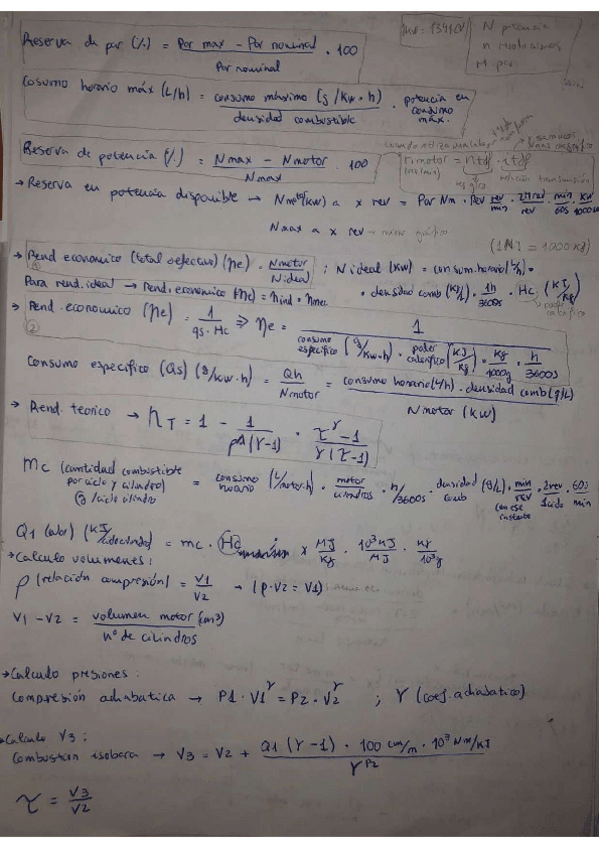 Reserva de par (%) = Par max - Par nominal / Par nominal · 100
N potencia
n revoluciones
M par
Cosumo horario máx (L/h) = consumo máximo (g/kw·h) / densidad combustible · potencia en consumo máx.
Reserva de potencia (%) = Nmax - Nmotor / Nmax · 100
nmotor = ntdf · itdf
relación transmisión
→ Reserva en potencia disponible → Nmotor(kw) a x rev = Par Nm · Rev rev/min · 2π rad/rev · min/60s · kw/1000w
Nmax a x rev → mirar gráfico
→ Rend economico (total efectivo) (ηe) = Nmotor / Nideal ; N ideal (kw) = consum.horario(L/h) ·
· densidad comb (kg/L) · 1h/3600s · Hc (kJ/kg)
Para rend.ideal → Rend. economico (ηe) = ηind · ηmec
→ Rend. economico (ηe) = 1 / qs·Hc ⇒ ηe = 1 / consumo especifico (g/kw·h) · poder calorifico (kJ/kg) · kg/1000g · h/3600s
Consumo especifico (Qs) (g/kw·h) = Qh / Nmotor = consumo horario(L/h) · densidad comb(g/L) / Nmotor (kw)
→ Rend. teorico → ηT = 1 - 1 / ρ^(γ-1) · τ^γ - 1 / γ(τ-1)
mc (cantidad combustible por ciclo y cilindro) = consumo horario (L/motor·h) · motor/cilindros · h/3600s · densidad comb (g/L) · min/rev · 2rev/1ciclo · 60s/min
(en ese instante)
g/ciclo cilindro
Q1 (abs) = mc · Hc x MJ/kg · 10³kJ/MJ · kg/10³g
→ Calculo volumenes:
ρ (relación compresión) = V1/V2 → (ρ·V2 = V1)
V1 - V2 = volumen motor (cm³) / nº de cilindros
→ Calculo presiones:
Compresión adiabatica → P1 · V1^γ = P2 · V2^γ ; γ (coef. adiabatico)
→ Calculo V3:
Combustion isobara → V3 = V2 + Q1 (γ-1) · 100 cm/m · 10³ Nm/kJ / γ P2
τ = V3/V2